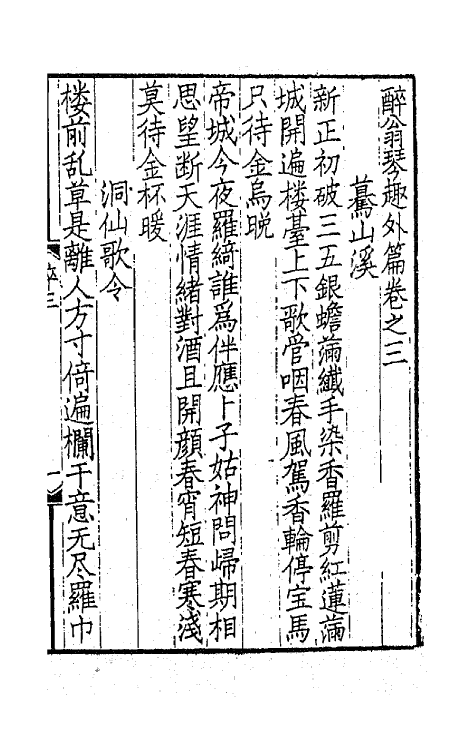 醉翁琴趣外篇卷之三
驀山溪
新正初破三五銀蟾滿纎手染香羅剪紅蓮滿
城開遍楼臺上下歌管咽春風駕香輪停宝馬
只待金烏晩
帝城今夜羅綺誰爲伴應卜子姑神問歸期相
思望断天涯情緒對酒且開顔春宵短春寒淺
莫待金杯暖
洞仙歌令
楼前乱草是離人方寸倚遍欄干意无尽羅巾
醉三
一